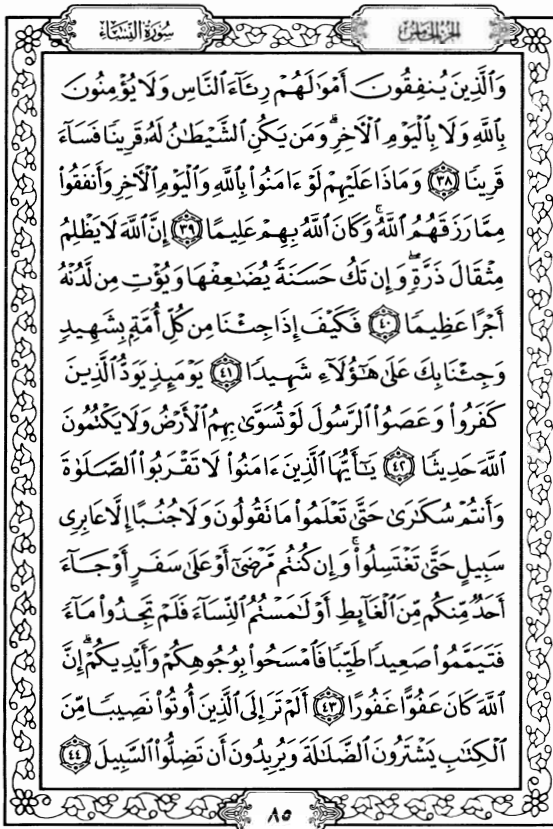 سُورَةُ النِّسَاءِ
الجُزْءُ الخَامِسُ
وَٱلَّذِينَ يُنفِقُونَ أَمْوَٰلَهُمْ رِئَآءَ ٱلنَّاسِ وَلَا يُؤْمِنُونَ
بِٱللَّهِ وَلَا بِٱلْيَوْمِ ٱلْأَخِرِ ۗ وَمَن يَكُنِ ٱلشَّيْطَٰنُ لَهُۥ قَرِينًا فَسَآءَ
قَرِينًا ﴿٣٨﴾ وَمَاذَا عَلَيْهِمْ لَوْ ءَامَنُوا۟ بِٱللَّهِ وَٱلْيَوْمِ ٱلْأَخِرِ وَأَنفَقُوا۟
مِمَّا رَزَقَهُمُ ٱللَّهُ ۚ وَكَانَ ٱللَّهُ بِهِمْ عَلِيمًا ﴿٣٩﴾ إِنَّ ٱللَّهَ لَا يَظْلِمُ
مِثْقَالَ ذَرَّةٍ ۖ وَإِن تَكُ حَسَنَةً يُضَٰعِفْهَا وَيُؤْتِ مِن لَّدُنْهُ
أَجْرًا عَظِيمًا ﴿٤٠﴾ فَكَيْفَ إِذَا جِئْنَا مِن كُلِّ أُمَّةٍۭ بِشَهِيدٍ
وَجِئْنَا بِكَ عَلَىٰ هَٰٓؤُلَآءِ شَهِيدًا ﴿٤١﴾ يَوْمَئِذٍ يَوَدُّ ٱلَّذِينَ
كَفَرُوا۟ وَعَصَوُا۟ ٱلرَّسُولَ لَوْ تُسَوَّىٰ بِهِمُ ٱلْأَرْضُ وَلَا يَكْتُمُونَ
ٱللَّهَ حَدِيثًا ﴿٤٢﴾ يَٰٓأَيُّهَا ٱلَّذِينَ ءَامَنُوا۟ لَا تَقْرَبُوا۟ ٱلصَّلَوٰةَ
وَأَنتُمْ سُكَٰرَىٰ حَتَّىٰ تَعْلَمُوا۟ مَا تَقُولُونَ وَلَا جُنُبًا إِلَّا عَابِرِى
سَبِيلٍ حَتَّىٰ تَغْتَسِلُوا۟ ۚ وَإِن كُنتُم مَّرْضَىٰٓ أَوْ عَلَىٰ سَفَرٍ أَوْ جَآءَ
أَحَدٌ مِّنكُم مِّنَ ٱلْغَآئِطِ أَوْ لَٰمَسْتُمُ ٱلنِّسَآءَ فَلَمْ تَجِدُوا۟ مَآءً
فَتَيَمَّمُوا۟ صَعِيدًا طَيِّبًا فَٱمْسَحُوا۟ بِوُجُوهِكُمْ وَأَيْدِيكُمْ ۗ إِنَّ
ٱللَّهَ كَانَ عَفُوًّا غَفُورًا ﴿٤٣﴾ أَلَمْ تَرَ إِلَى ٱلَّذِينَ أُوتُوا۟ نَصِيبًا مِّنَ
ٱلْكِتَٰبِ يَشْتَرُونَ ٱلضَّلَٰلَةَ وَيُرِيدُونَ أَن تَضِلُّوا۟ ٱلسَّبِيلَ ﴿٤٤﴾
٨٥